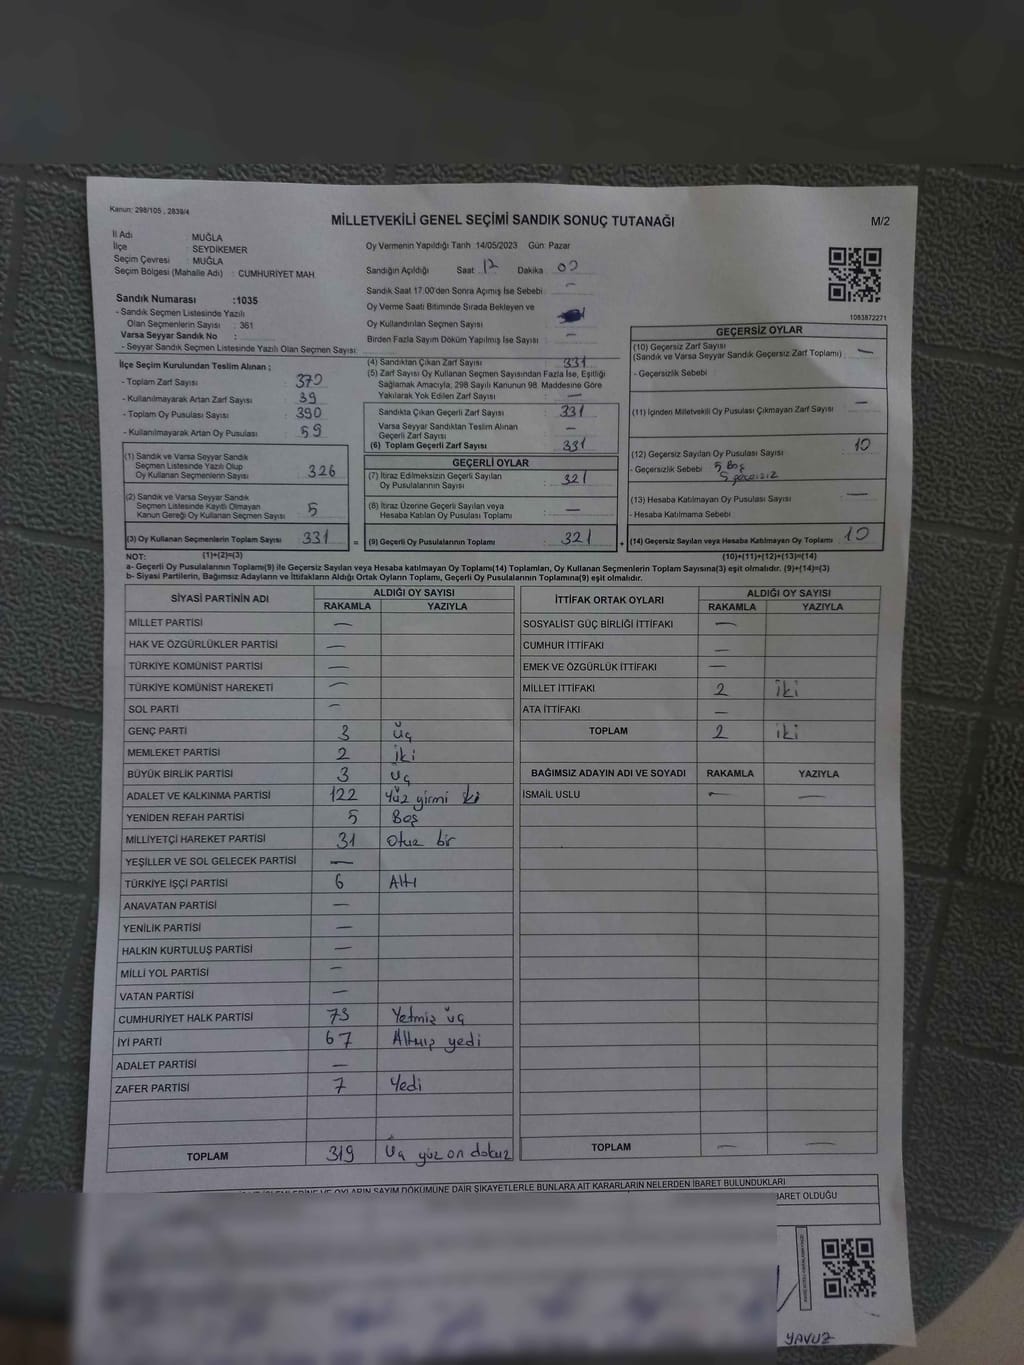 Kanun: 298/105 , 2839/4
MİLLETVEKİLİ GENEL SEÇİMİ SANDIK SONUÇ TUTANAĞI
M/2
İl Adı : MUĞLA
İlçe : SEYDİKEMER
Seçim Çevresi : MUĞLA
Seçim Bölgesi (Mahalle Adı) : CUMHURİYET MAH.
Sandık Numarası :1035
- Sandık Seçmen Listesinde Yazılı
Olan Seçmenlerin Sayısı : 361
Varsa Seyyar Sandık No :
- Seyyar Sandık Seçmen Listesinde Yazılı Olan Seçmen Sayısı:
Oy Vermenin Yapıldığı Tarih 14/05/2023 Gün: Pazar
Sandığın Açıldığı Saat 17 Dakika 00
Sandık Saat 17:00'den Sonra Açımış İse Sebebi —
Oy Verme Saati Bitiminde Sırada Bekleyen ve
Oy Kullandırılan Seçmen Sayısı
Birden Fazla Sayım Döküm Yapılmış İse Sayısı : —
1083872271
İlçe Seçim Kurulundan Teslim Alınan ;
- Toplam Zarf Sayısı : 370
- Kullanılmayarak Artan Zarf Sayısı : 39
- Toplam Oy Pusulası Sayısı : 390
- Kullanılmayarak Artan Oy Pusulası : 59
(1) Sandık ve Varsa Seyyar Sandık
Seçmen Listesinde Yazılı Olup
Oy Kullanan Seçmenlerin Sayısı : 326
(2) Sandık ve Varsa Seyyar Sandık
Seçmen Listesinde Kayıtlı Olmayan
Kanun Gereği Oy Kullanan Seçmen Sayısı : 5
(3) Oy Kullanan Seçmenlerin Toplam Sayısı : 331
(1)+(2)=(3)
(4) Sandıktan Çıkan Zarf Sayısı : 331
(5) Zarf Sayısı Oy Kullanan Seçmen Sayısından Fazla İse, Eşitliği
Sağlamak Amacıyla, 298 Sayılı Kanunun 98. Maddesine Göre
Yakılarak Yok Edilen Zarf Sayısı : —
Sandıkta Çıkan Geçerli Zarf Sayısı : 331
Varsa Seyyar Sandıktan Teslim Alınan
Geçerli Zarf Sayısı : —
(6) Toplam Geçerli Zarf Sayısı : 331
GEÇERLİ OYLAR
(7) İtiraz Edilmeksizin Geçerli Sayılan
Oy Pusulalarının Sayısı : 321
(8) İtiraz Üzerine Geçerli Sayılan veya
Hesaba Katılan Oy Pusulası Toplamı : —
= (9) Geçerli Oy Pusulalarının Toplamı : 321
GEÇERSİZ OYLAR
(10) Geçersiz Zarf Sayısı
(Sandık ve Varsa Seyyar Sandık Geçersiz Zarf Toplamı) : —
- Geçersizlik Sebebi :
(11) İçinden Milletvekili Oy Pusulası Çıkmayan Zarf Sayısı : —
(12) Geçersiz Sayılan Oy Pusulası Sayısı : 10
- Geçersizlik Sebebi : 5 Boş
5 geçersiz
(13) Hesaba Katılmayan Oy Pusulası Sayısı : —
- Hesaba Katılmama Sebebi :
+ (14) Geçersiz Sayılan veya Hesaba Katılmayan Oy Toplamı : 10
(10)+(11)+(12)+(13)=(14)
NOT:
a- Geçerli Oy Pusulalarının Toplamı(9) ile Geçersiz Sayılan veya Hesaba katılmayan Oy Toplamı(14) Toplamları, Oy Kullanan Seçmenlerin Toplam Sayısına(3) eşit olmalıdır. (9)+(14)=(3)
b- Siyasi Partilerin, Bağımsız Adayların ve İttifakların Aldığı Ortak Oyların Toplamı, Geçerli Oy Pusulalarının Toplamına(9) eşit olmalıdır.
SİYASİ PARTİNİN ADI ALDIĞI OY SAYISI
RAKAMLA YAZIYLA
MİLLET PARTİSİ —
HAK VE ÖZGÜRLÜKLER PARTİSİ —
TÜRKİYE KOMÜNİST PARTİSİ —
TÜRKİYE KOMÜNİST HAREKETİ —
SOL PARTİ —
GENÇ PARTİ 3 üç
MEMLEKET PARTİSİ 2 iki
BÜYÜK BİRLİK PARTİSİ 3 üç
ADALET VE KALKINMA PARTİSİ 122 Yüz yirmi iki
YENİDEN REFAH PARTİSİ 5 Beş
MİLLİYETÇİ HAREKET PARTİSİ 31 Otuz bir
YEŞİLLER VE SOL GELECEK PARTİSİ —
TÜRKİYE İŞÇİ PARTİSİ 6 Altı
ANAVATAN PARTİSİ —
YENİLİK PARTİSİ —
HALKIN KURTULUŞ PARTİSİ —
MİLLİ YOL PARTİSİ —
VATAN PARTİSİ —
CUMHURİYET HALK PARTİSİ 73 Yetmiş üç
İYİ PARTİ 67 Altmış yedi
ADALET PARTİSİ —
ZAFER PARTİSİ 7 Yedi
TOPLAM 319 Üç yüz on dokuz
İTTİFAK ORTAK OYLARI ALDIĞI OY SAYISI
RAKAMLA YAZIYLA
SOSYALİST GÜÇ BİRLİĞİ İTTİFAKI —
CUMHUR İTTİFAKI —
EMEK VE ÖZGÜRLÜK İTTİFAKI —
MİLLET İTTİFAKI 2 iki
ATA İTTİFAKI —
TOPLAM 2 iki
BAĞIMSIZ ADAYIN ADI VE SOYADI RAKAMLA YAZIYLA
İSMAİL USLU — —
TOPLAM — —
VE OYLARIN SAYIM DÖKÜMÜNE DAİR ŞİKAYETLERLE BUNLARA AİT KARARLARIN NELERDEN İBARET BULUNDUKLARI
OLDUĞU
YAVUZ